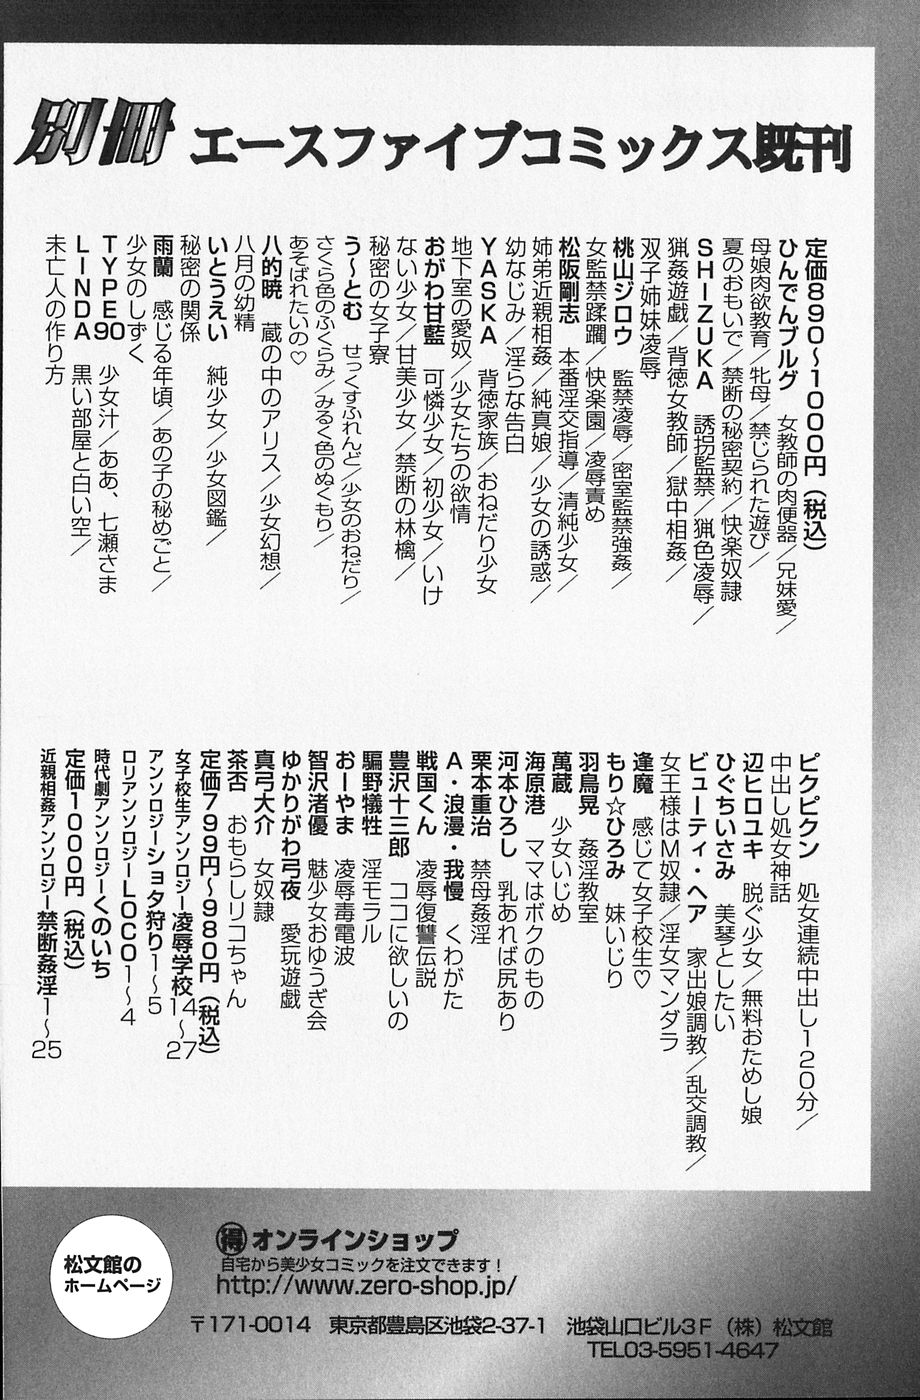 別冊 エースファイブコミックス既刊
定価890～1000円（税込）
ひんでんブルグ　女教師の肉便器／兄妹愛／
母娘肉欲教育／牝母／禁じられた遊び／
夏のおもいで／禁断の秘密契約／快楽奴隷
SHIZUKA　誘拐監禁／猟色凌辱／
猟姦遊戯／背徳女教師／獄中相姦／
双子姉妹凌辱
桃山ジロウ　監禁凌辱／密室監禁強姦／
女監禁蹂躙／快楽園／凌辱責め
松阪剛志　本番淫交指導／清純少女／
姉弟近親相姦／純真娘／少女の誘惑／
幼なじみ／淫らな告白
YASKA　背徳家族／おねだり少女
地下室の愛奴／少女たちの欲情
おがわ甘藍　可憐少女／初少女／いけ
ない少女／甘美少女／禁断の林檎／
秘密の女子寮
う～とむ　せっくすふれんど／少女のおねだり／
さくら色のふくらみ／みるく色のぬくもり／
あそばれたいの♡
八的暁　蔵の中のアリス／少女幻想／
八月の幼精
いとうえい　純少女／少女図鑑／
秘密の関係
雨蘭　感じる年頃／あの子の秘めごと／
少女のしずく
TYPE90　少女汁／ああ、七瀬さま
LINDA　黒い部屋と白い空／
未亡人の作り方
ピクピクン　処女連続中出し120分／
中出し処女神話
辺ヒロユキ　脱ぐ少女／無料おためし娘
ひぐちいさみ　美琴としたい
ビューティ・ヘア　家出娘調教／乱交調教／
女王様はM奴隷／淫女マンダラ
逢魔　感じて女子校生♡
もり☆ひろみ　妹いじり
羽鳥晃　姦淫教室
萬蔵　少女いじめ
海原港　ママはボクのもの
河本ひろし　乳あれば尻あり
栗本重治　禁母姦淫
A・浪漫・我慢　くわがた
戦国くん　凌辱復讐伝説
豊沢十三郎　ココに欲しいの
騙野犠牲　淫モラル
おーやま　凌辱毒電波
智沢渚優　魅少女おゆうぎ会
ゆかりがわ弓夜　愛玩遊戯
真弓大介　女奴隷
茶否　おもらしリコちゃん
定価799円～980円（税込）
女子校生アンソロジー凌辱学校14～27
アンソロジーショタ狩り1～5
ロリアンソロジーLOCO1～4
時代劇アンソロジーくのいち
定価1000円（税込）
近親相姦アンソロジー禁断姦淫1～25
松文館の
ホームページ
得オンラインショップ
自宅から美少女コミックを注文できます！
http://www.zero-shop.jp/
〒171-0014　東京都豊島区池袋2-37-1　池袋山口ビル3F（株）松文館
TEL03-5951-4647